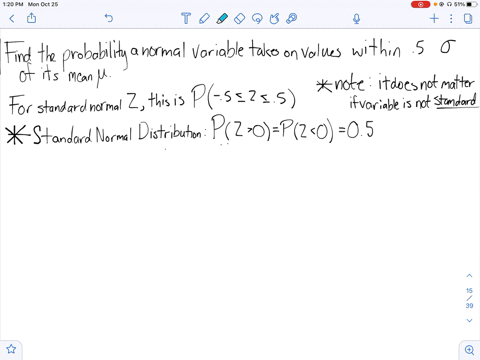 1:20 PM Mon Oct 25
51%
Find the probability a normal variable takes on values within .5 σ
of its mean μ.
For standard normal Z, this is P(-.5 ≤ Z ≤ .5)
* note: it does not matter
if variable is not standard
* Standard Normal Distribution: P(Z>0) = P(Z<0) = 0.5
15
/
39